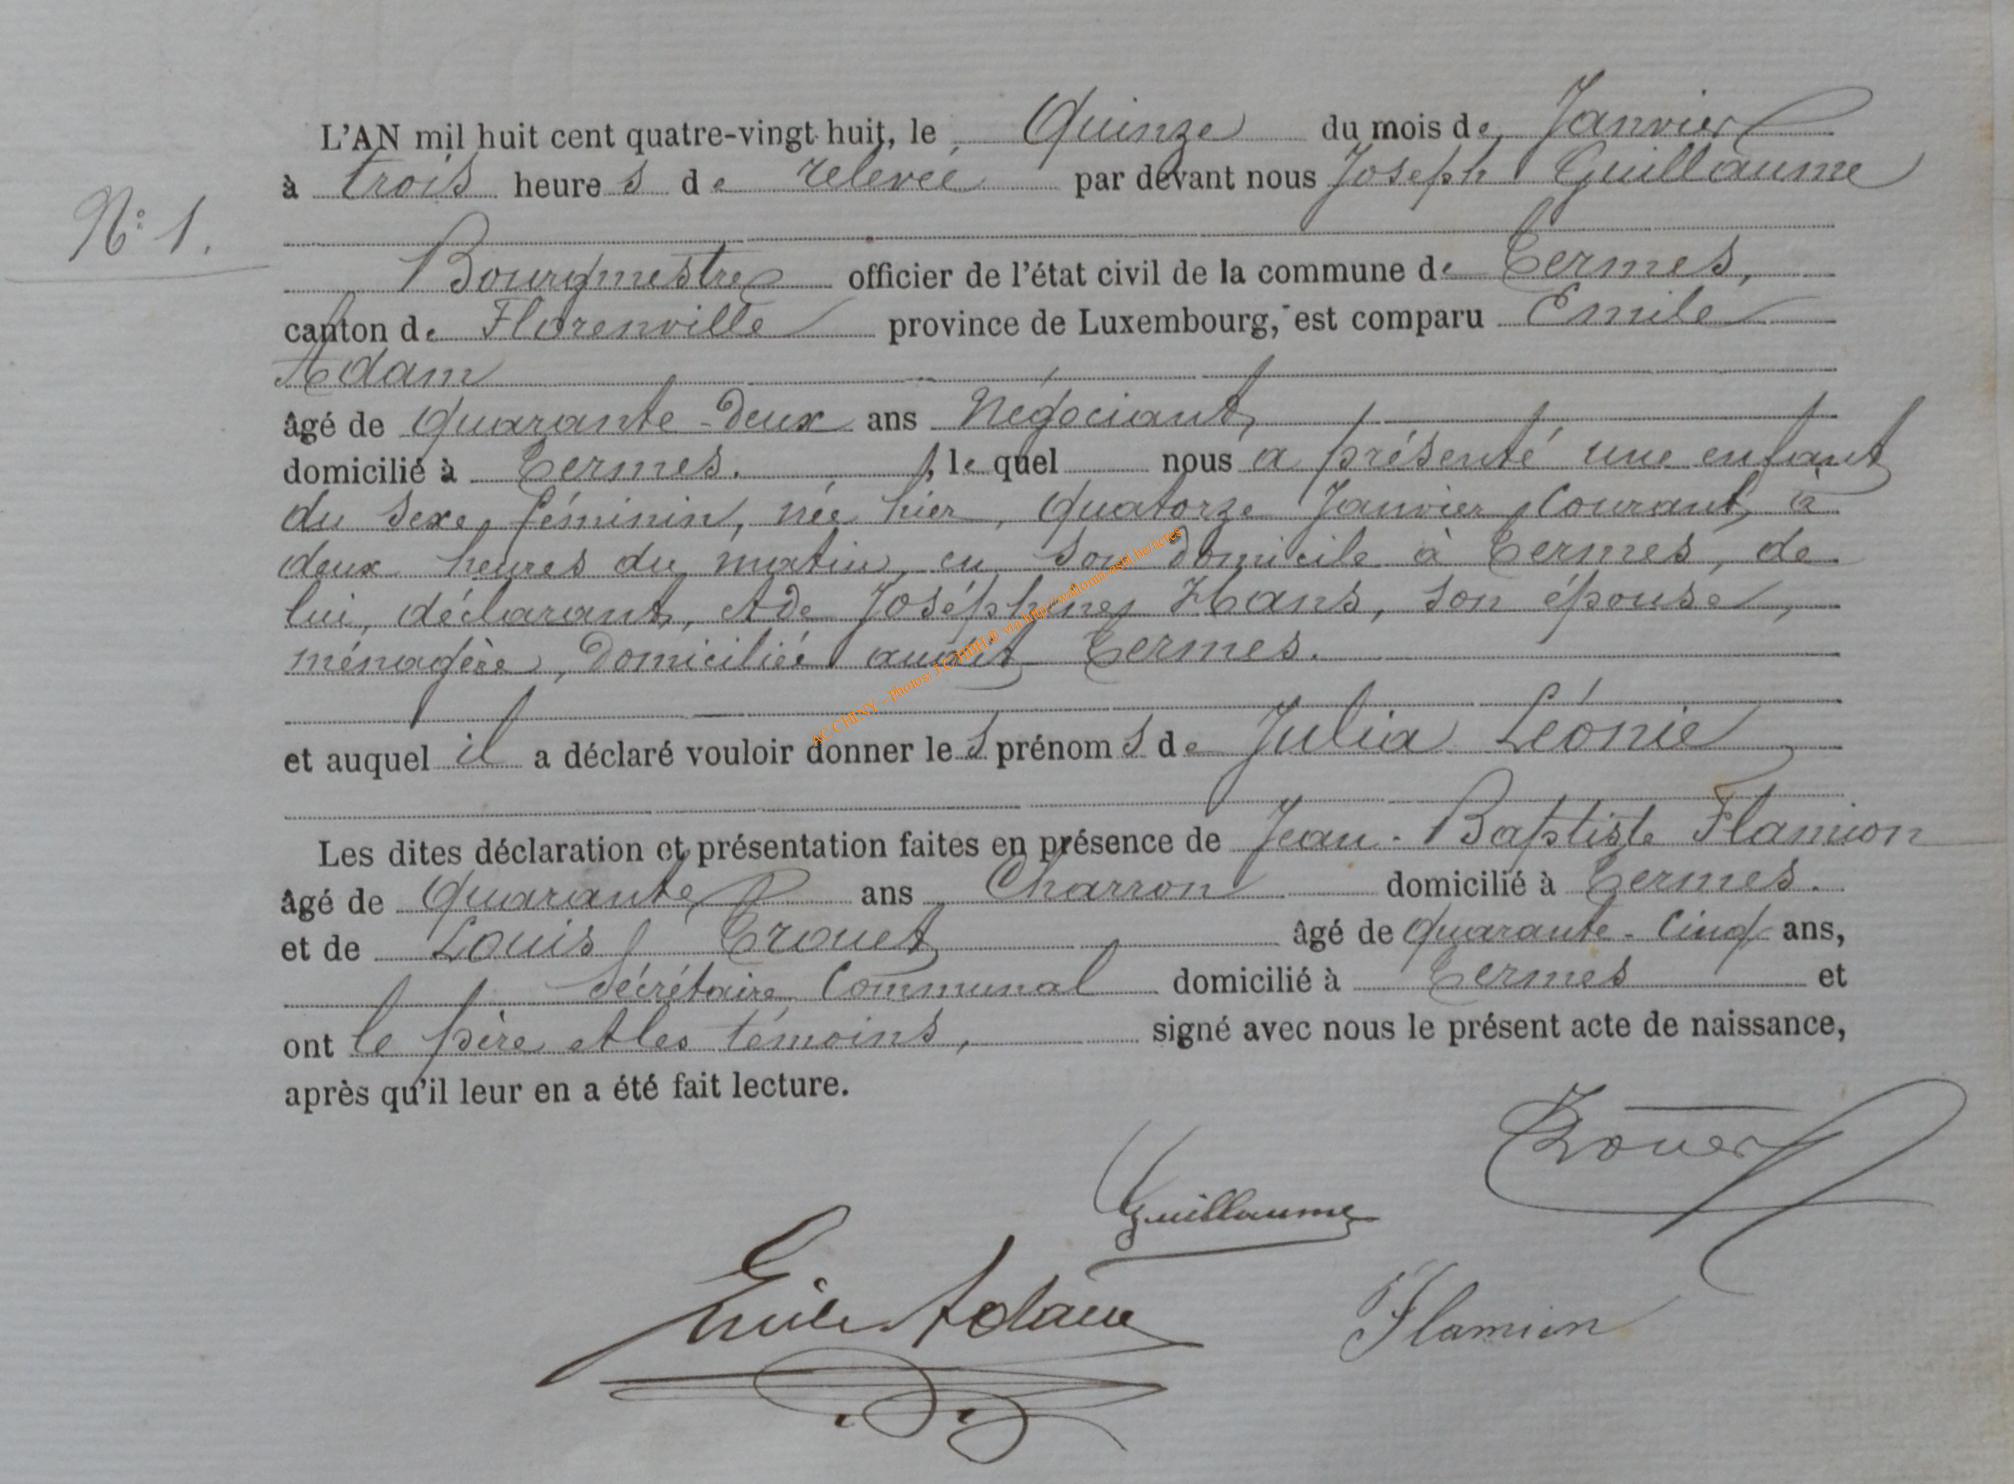 L'AN mil huit cent quatre-vingt huit, le Quinze du mois de Janvier
à trois heures de relevée par devant nous Joseph Guillaume
N° 1.
Bourgmestre officier de l'état civil de la commune de Termes,
canton de Florenville province de Luxembourg, est comparu Emile
Adam
âgé de quarante-deux ans Négociant,
domicilié à Termes. , lequel nous a présenté une enfant
du sexe féminin, née hier, quatorze Janvier courant, à
deux heures du matin, en son domicile à Termes, de
lui, déclarant, et de Joséphine Hans, son épouse,
ménagère, domiciliée audit Termes.
et auquel il a déclaré vouloir donner les prénoms de Julia Léonie
Les dites déclaration et présentation faites en présence de Jean-Baptiste Flamion
âgé de quarante ans Charron domicilié à Termes.
et de Louis Trouet âgé de quarante-cinq ans,
Sécrétaire Communal domicilié à Termes et
ont le père et les témoins, signé avec nous le présent acte de naissance,
après qu'il leur en a été fait lecture.
Trouet
Guillaume
Emile Adam
Flamion
AC CHINY - Photos: J-C HBH® via http://wallonia.asbl.be/actes